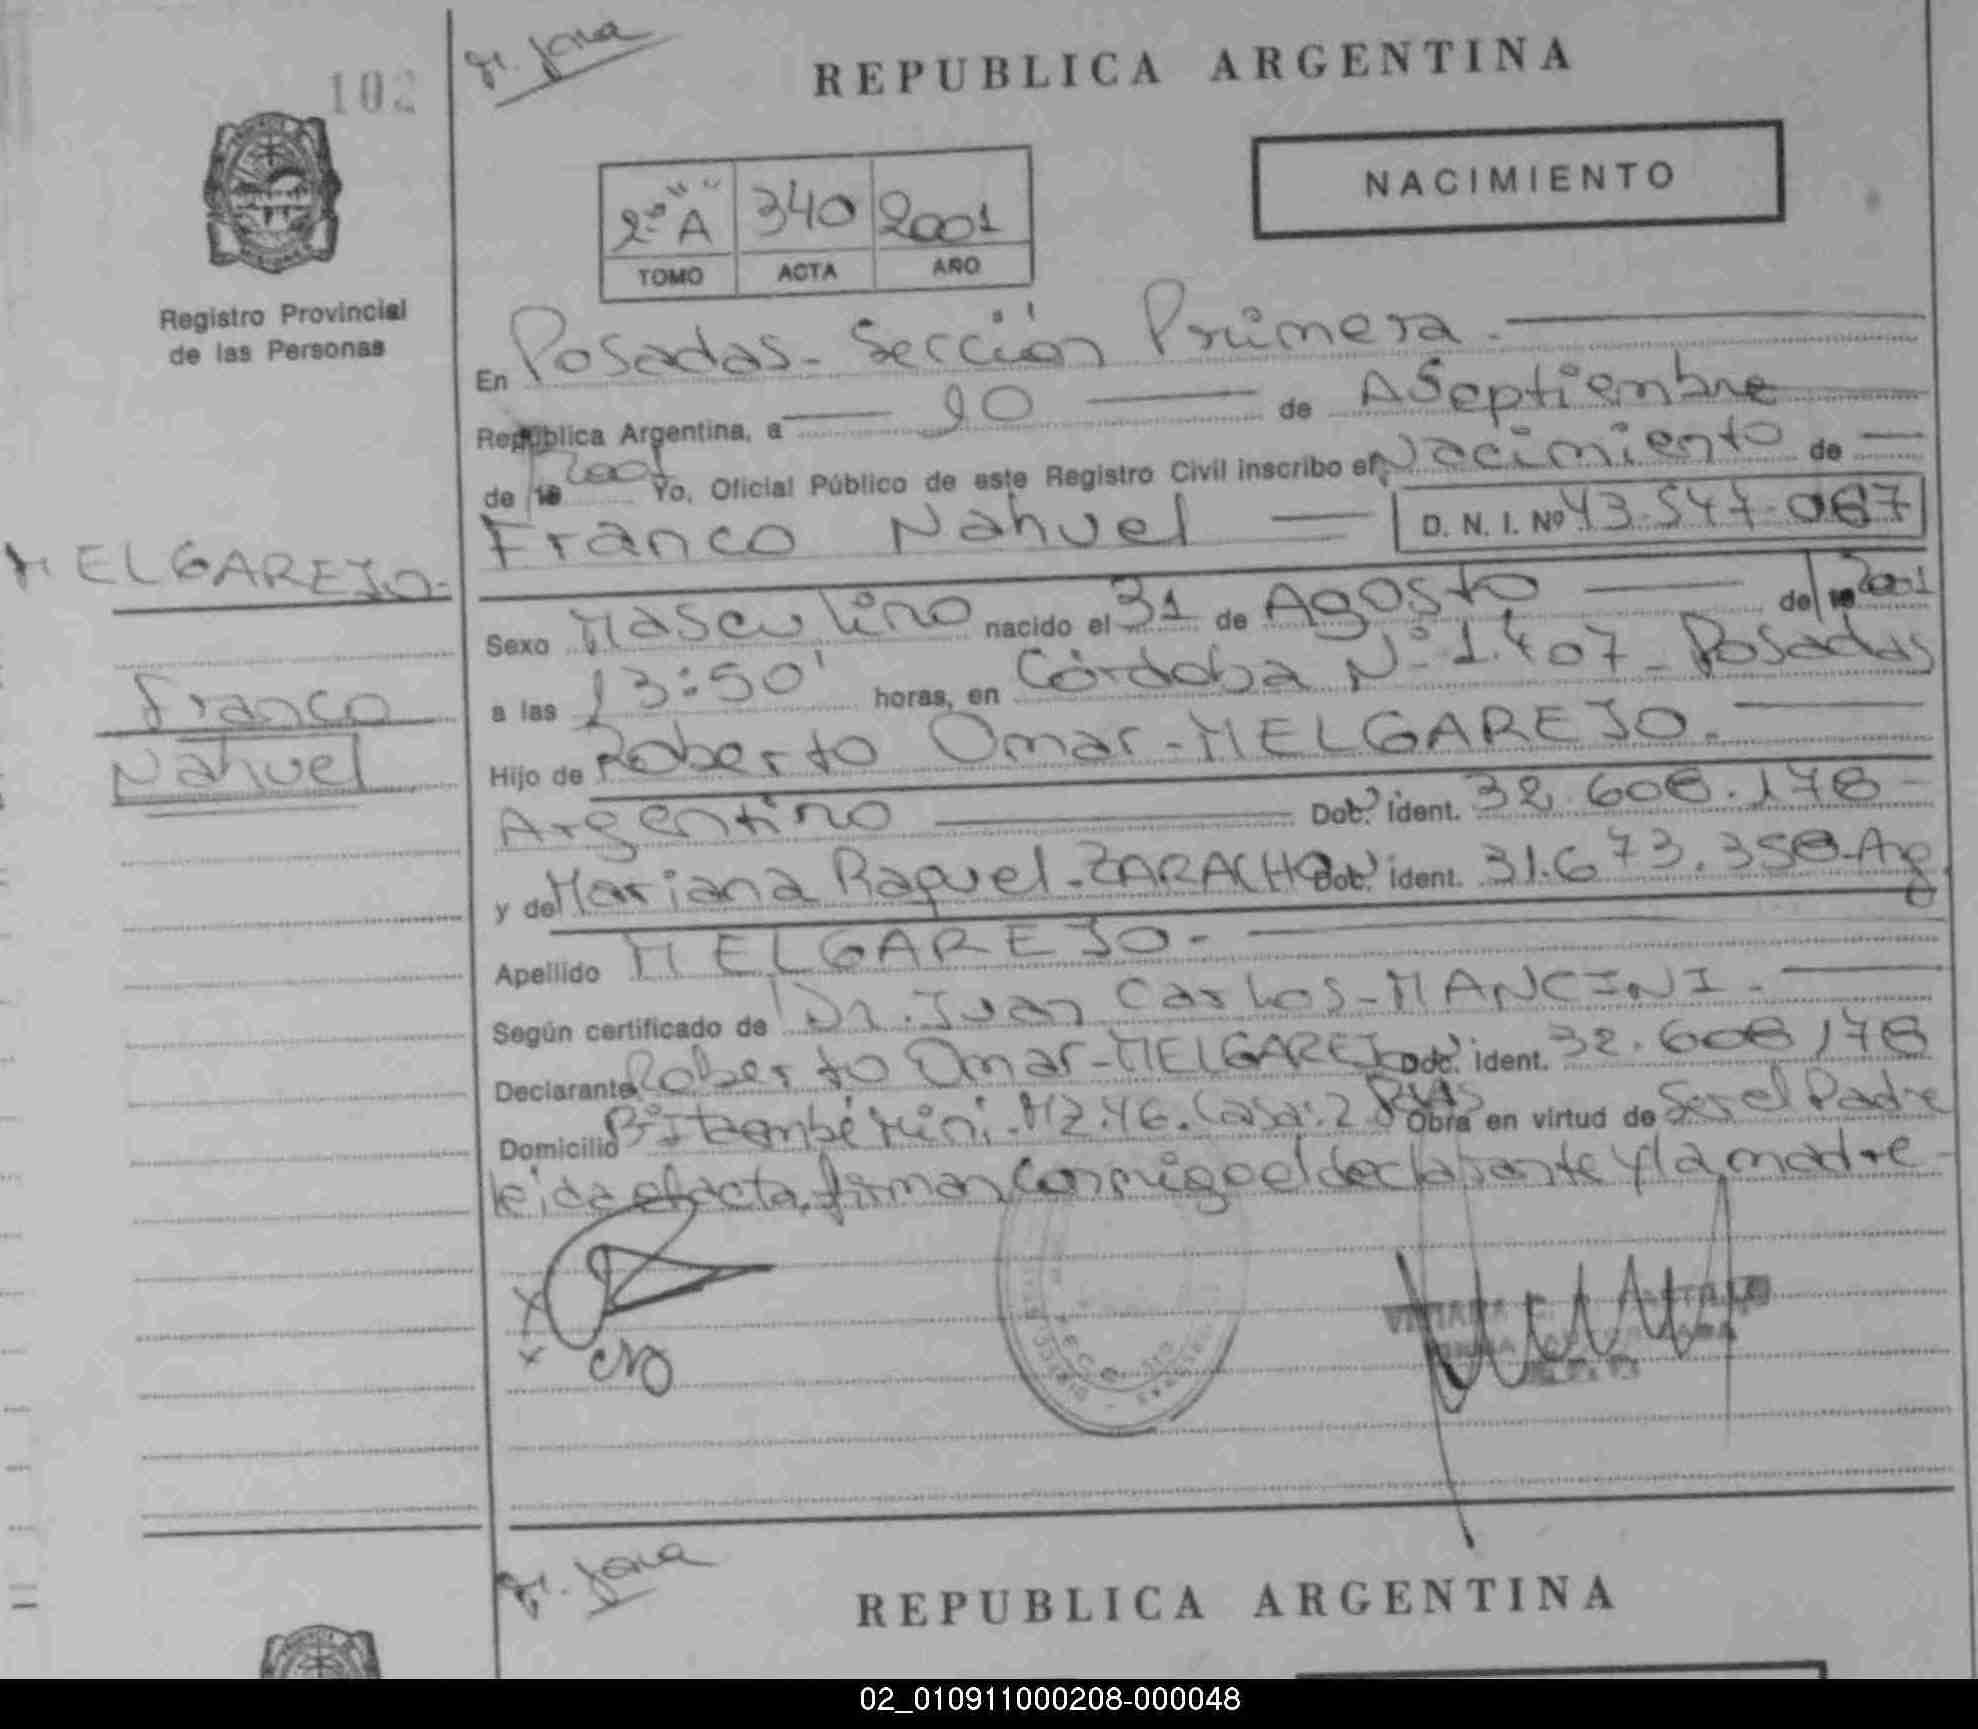 102
REPUBLICA ARGENTINA
NACIMIENTO
2º "A" 340 2001
TOMO ACTA AÑO
Registro Provincial
de las Personas
En Posadas - Sección Primera.
República Argentina, a 10 de ASeptiembre
de 19 2001 Yo, Oficial Público de este Registro Civil inscribo el Nacimiento de
Franco Nahuel D. N. I. Nº 43.547.067
MELGAREJO-
Franco
Nahuel
Sexo Masculino nacido el 31 de Agosto de 19 2001
a las 13:50' horas, en Córdoba Nº 1.407 - Posadas
Hijo de Roberto Omar - MELGAREJO.
Argentino Doc. ident. 32.608.178
y de Mariana Raquel - ZARACHO Doc. ident. 31.673.358-Arg.
Apellido MELGAREJO-
Según certificado de Dr. Juan Carlos - MANCINI.
Declarante Roberto Omar - MELGAREJO Doc. ident. 32.608.178
Domicilio Bº Itaembé Miní. MZ. 46. Casa: 2 Obra en virtud de Ser el Padre
leida el acta, firman conmigo el declarante y la madre
REPUBLICA ARGENTINA
02_010911000208-000048